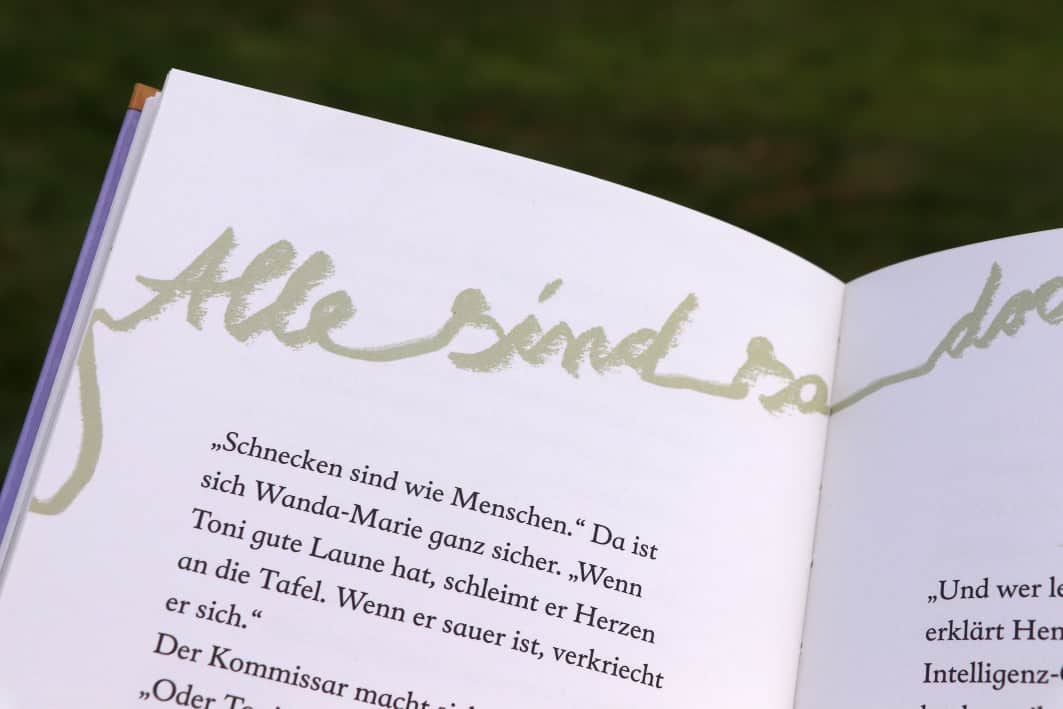 Alle sind so
„Schnecken sind wie Menschen.“ Da ist
sich Wanda-Marie ganz sicher. „Wenn
Toni gute Laune hat, schleimt er Herzen
an die Tafel. Wenn er sauer ist, verkriecht
er sich.“
Der Kommissar macht
„Oder
„Und wer
erklärt
Intelligenz-